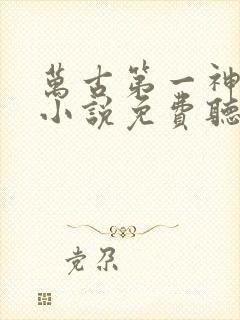 萬古第一神
小說免費聽
党尕